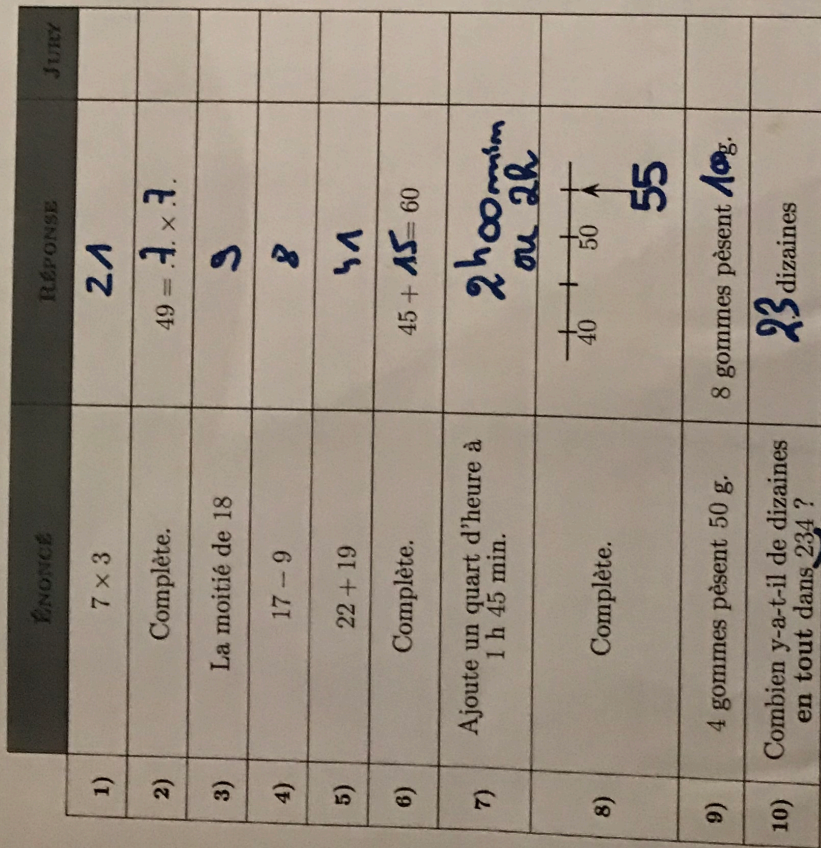 ÉNONCÉ RÉPONSE JURY
1) 7 × 3 21
2) Complète. 49 = .7. × .7.
3) La moitié de 18 9
4) 17 − 9 8
5) 22 + 19 41
6) Complète. 45 + 15 = 60
7) Ajoute un quart d'heure à 2h00min
1 h 45 min. ou 2h
8) Complète. 40 50
55
9) 4 gommes pèsent 50 g. 8 gommes pèsent 100g.
10) Combien y-a-t-il de dizaines 23 dizaines
en tout dans 234 ?